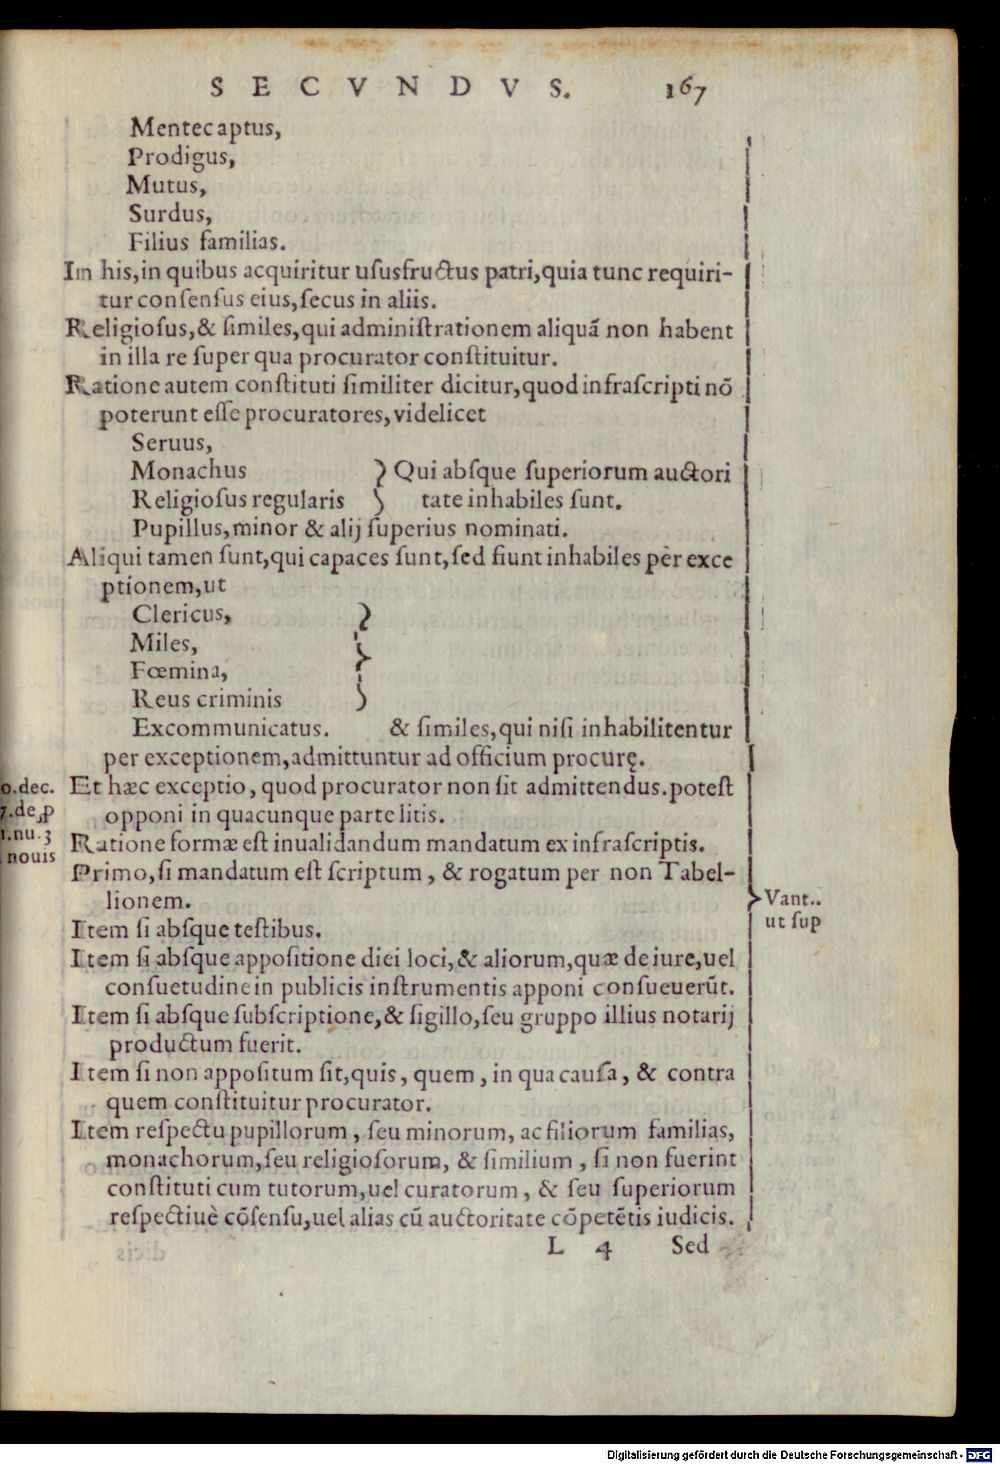 SECVNDVS. 167
Mentecaptus,
Prodigus,
Mutus,
Surdus,
Filius familias.
In his, in quibus acquiritur uſusfructus patri, quia tunc requiri-
tur conſenſus eius, ſecus in aliis.
Religioſus, & ſimiles, qui adminiſtrationem aliquã non habent
in illa re ſuper qua procurator conſtituitur.
Ratione autem conſtituti ſimiliter dicitur, quod infraſcripti nõ
poterunt eſſe procuratores, videlicet
Seruus,
Monachus } Qui abſque ſuperiorum auctori
Religioſus regularis } tate inhabiles ſunt.
Pupillus, minor & alij ſuperius nominati.
Aliqui tamen ſunt, qui capaces ſunt, ſed fiunt inhabiles per exce
ptionem, ut
Clericus,
Miles,
Fœmina,
Reus criminis
Excommunicatus. & ſimiles, qui niſi inhabilitentur
per exceptionem, admittuntur ad officium procurę.
0.dec. Et hæc exceptio, quod procurator non ſit admittendus. poteſt
7.de ꝓ opponi in quacunque parte litis.
1.nu.3 Ratione formæ eſt inualidandum mandatum ex infraſcriptis.
nouis
Primo, ſi mandatum eſt ſcriptum, & rogatum per non Tabel-
lionem. Vant..
ut ſup
Item ſi abſque teſtibus.
Item ſi abſque appoſitione diei loci, & aliorum, quæ de iure, uel
conſuetudine in publicis inſtrumentis apponi conſueuerũt.
Item ſi abſque ſubſcriptione, & ſigillo, ſeu gruppo illius notarij
productum fuerit.
Item ſi non appoſitum ſit, quis, quem, in qua cauſa, & contra
quem conſtituitur procurator.
Item reſpectu pupillorum, ſeu minorum, ac filiorum familias,
monachorum, ſeu religioſorum, & ſimilium, ſi non fuerint
conſtituti cum tutorum, uel curatorum, & ſeu ſuperiorum
reſpectiuè cõſenſu, uel alias cũ auctoritate cõpetẽtis iudicis.
L 4 Sed
Digitalisierung gefördert durch die Deutsche Forschungsgemeinschaft - DFG